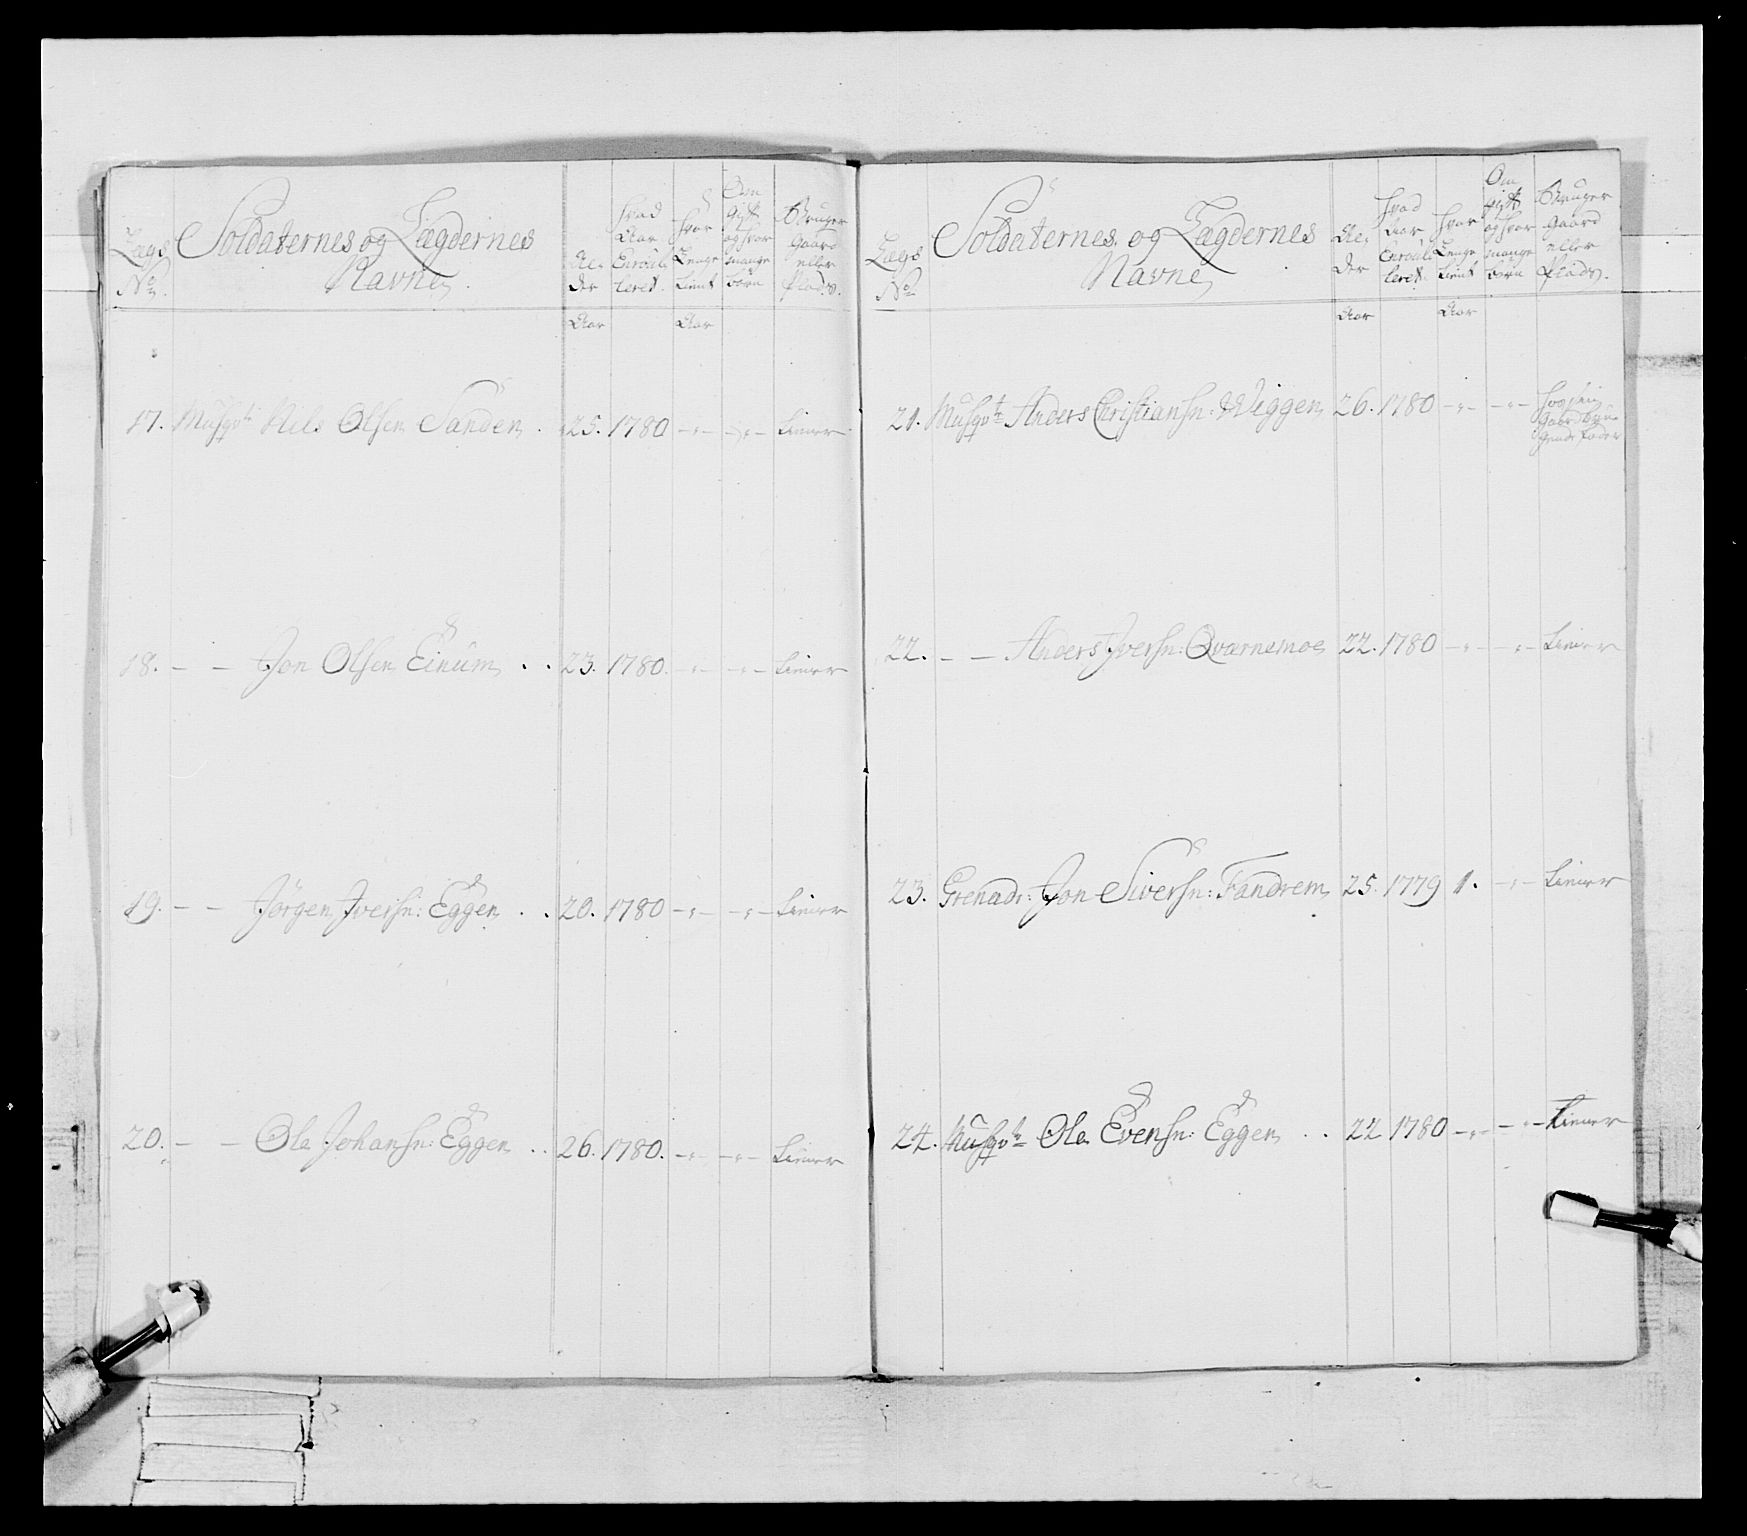 Lægs No
Soldaternes og Lægdernes Navne
Al- der
hvad Aar Enroul- leret
hvor Lenge tient
Om gift og hvor mange børn
Bruger Gaard eller Plads.
Aar Aar
17. Musqvt: Nils Olsen Sanden . 25. 1780 -"- -"- tiener
18. - - Jon Olsen Einum . . 23. 1780. -"- -"- tiener
19. - - Jörgen Iversn: Eggen . . 20. 1780 -"- -"- tiener
20. - - Ole Johansn: Eggen . . 26. 1780. -"- -"- tiener
Lægs No
Soldaternes og Lægdernes Navne
Al- der
hvad Aar Enroul- leret
hvor Lenge tient
Om gift og hvor mange børn
Bruger Gaard eller Plads.
Aar Aar
21. Musqvt Anders Christiansn: Wiggen 26. 1780 -"- -"- hos sin Gaard bru- gende Fader
22. - - Anders Iversn: Qværnemoe 22. 1780 -"- -"- tiener
23. Grenadr: Jon Siversn: Fandrem 25. 1779 1. -"- tiener
24. Musqvt Ole Evensn: Eggen . . 22 1780 -"- -"- tiener